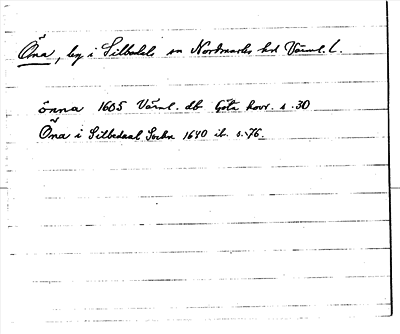 Öna, by i Silbodals sn Nordmarks hd Värml. l.
önna 1605 Värml. db Göta hovr. s. 30
Öna i Silbodaal Sochn 1640 ib. s. 76.